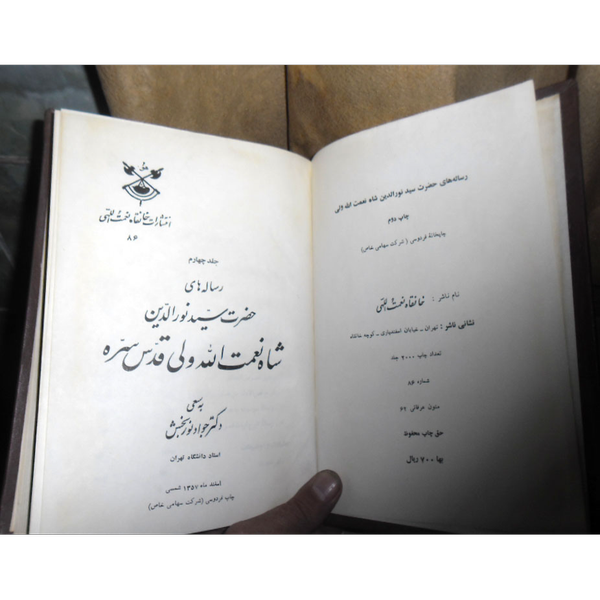 انتشارات خانقاه نعمت اللهی
۸۶
جلد چهارم
رساله های
حضرت سید نورالدّین
شاه نعمت الله ولی قدّس سرّه
به سعی
دکتر جواد نوربخش
استاد دانشگاه تهران
اسفند ماه ۱۳۵۷ شمسی
چاپ فردوسی (شرکت سهامی خاص)
رساله‌های حضرت سید نورالدین شاه نعمت الله ولی
چاپ دوم
چاپخانهٔ فردوسی (شرکت سهامی خاص)
نام ناشر : خانقاه نعمت اللهی
نشانی ناشر : تهران - خیابان
تعداد چاپ ۲۰۰۰ جلد
شماره
متون عرفانی ۶۹
حق چاپ محفوظ
بها ۷۰۰ ریال